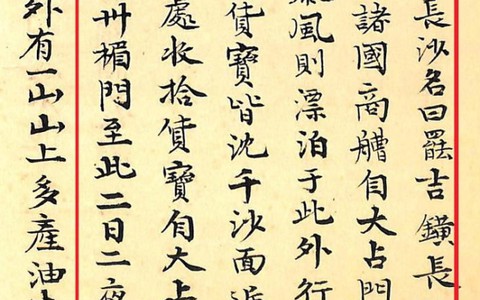 長沙名曰罷吉鐄長
諸國商艚自大占門
風則漂泊于此外行
貨寶皆沈于沙面
處收拾貨寶自大占
卅楣門至此二日二夜
外有一山山上多產油